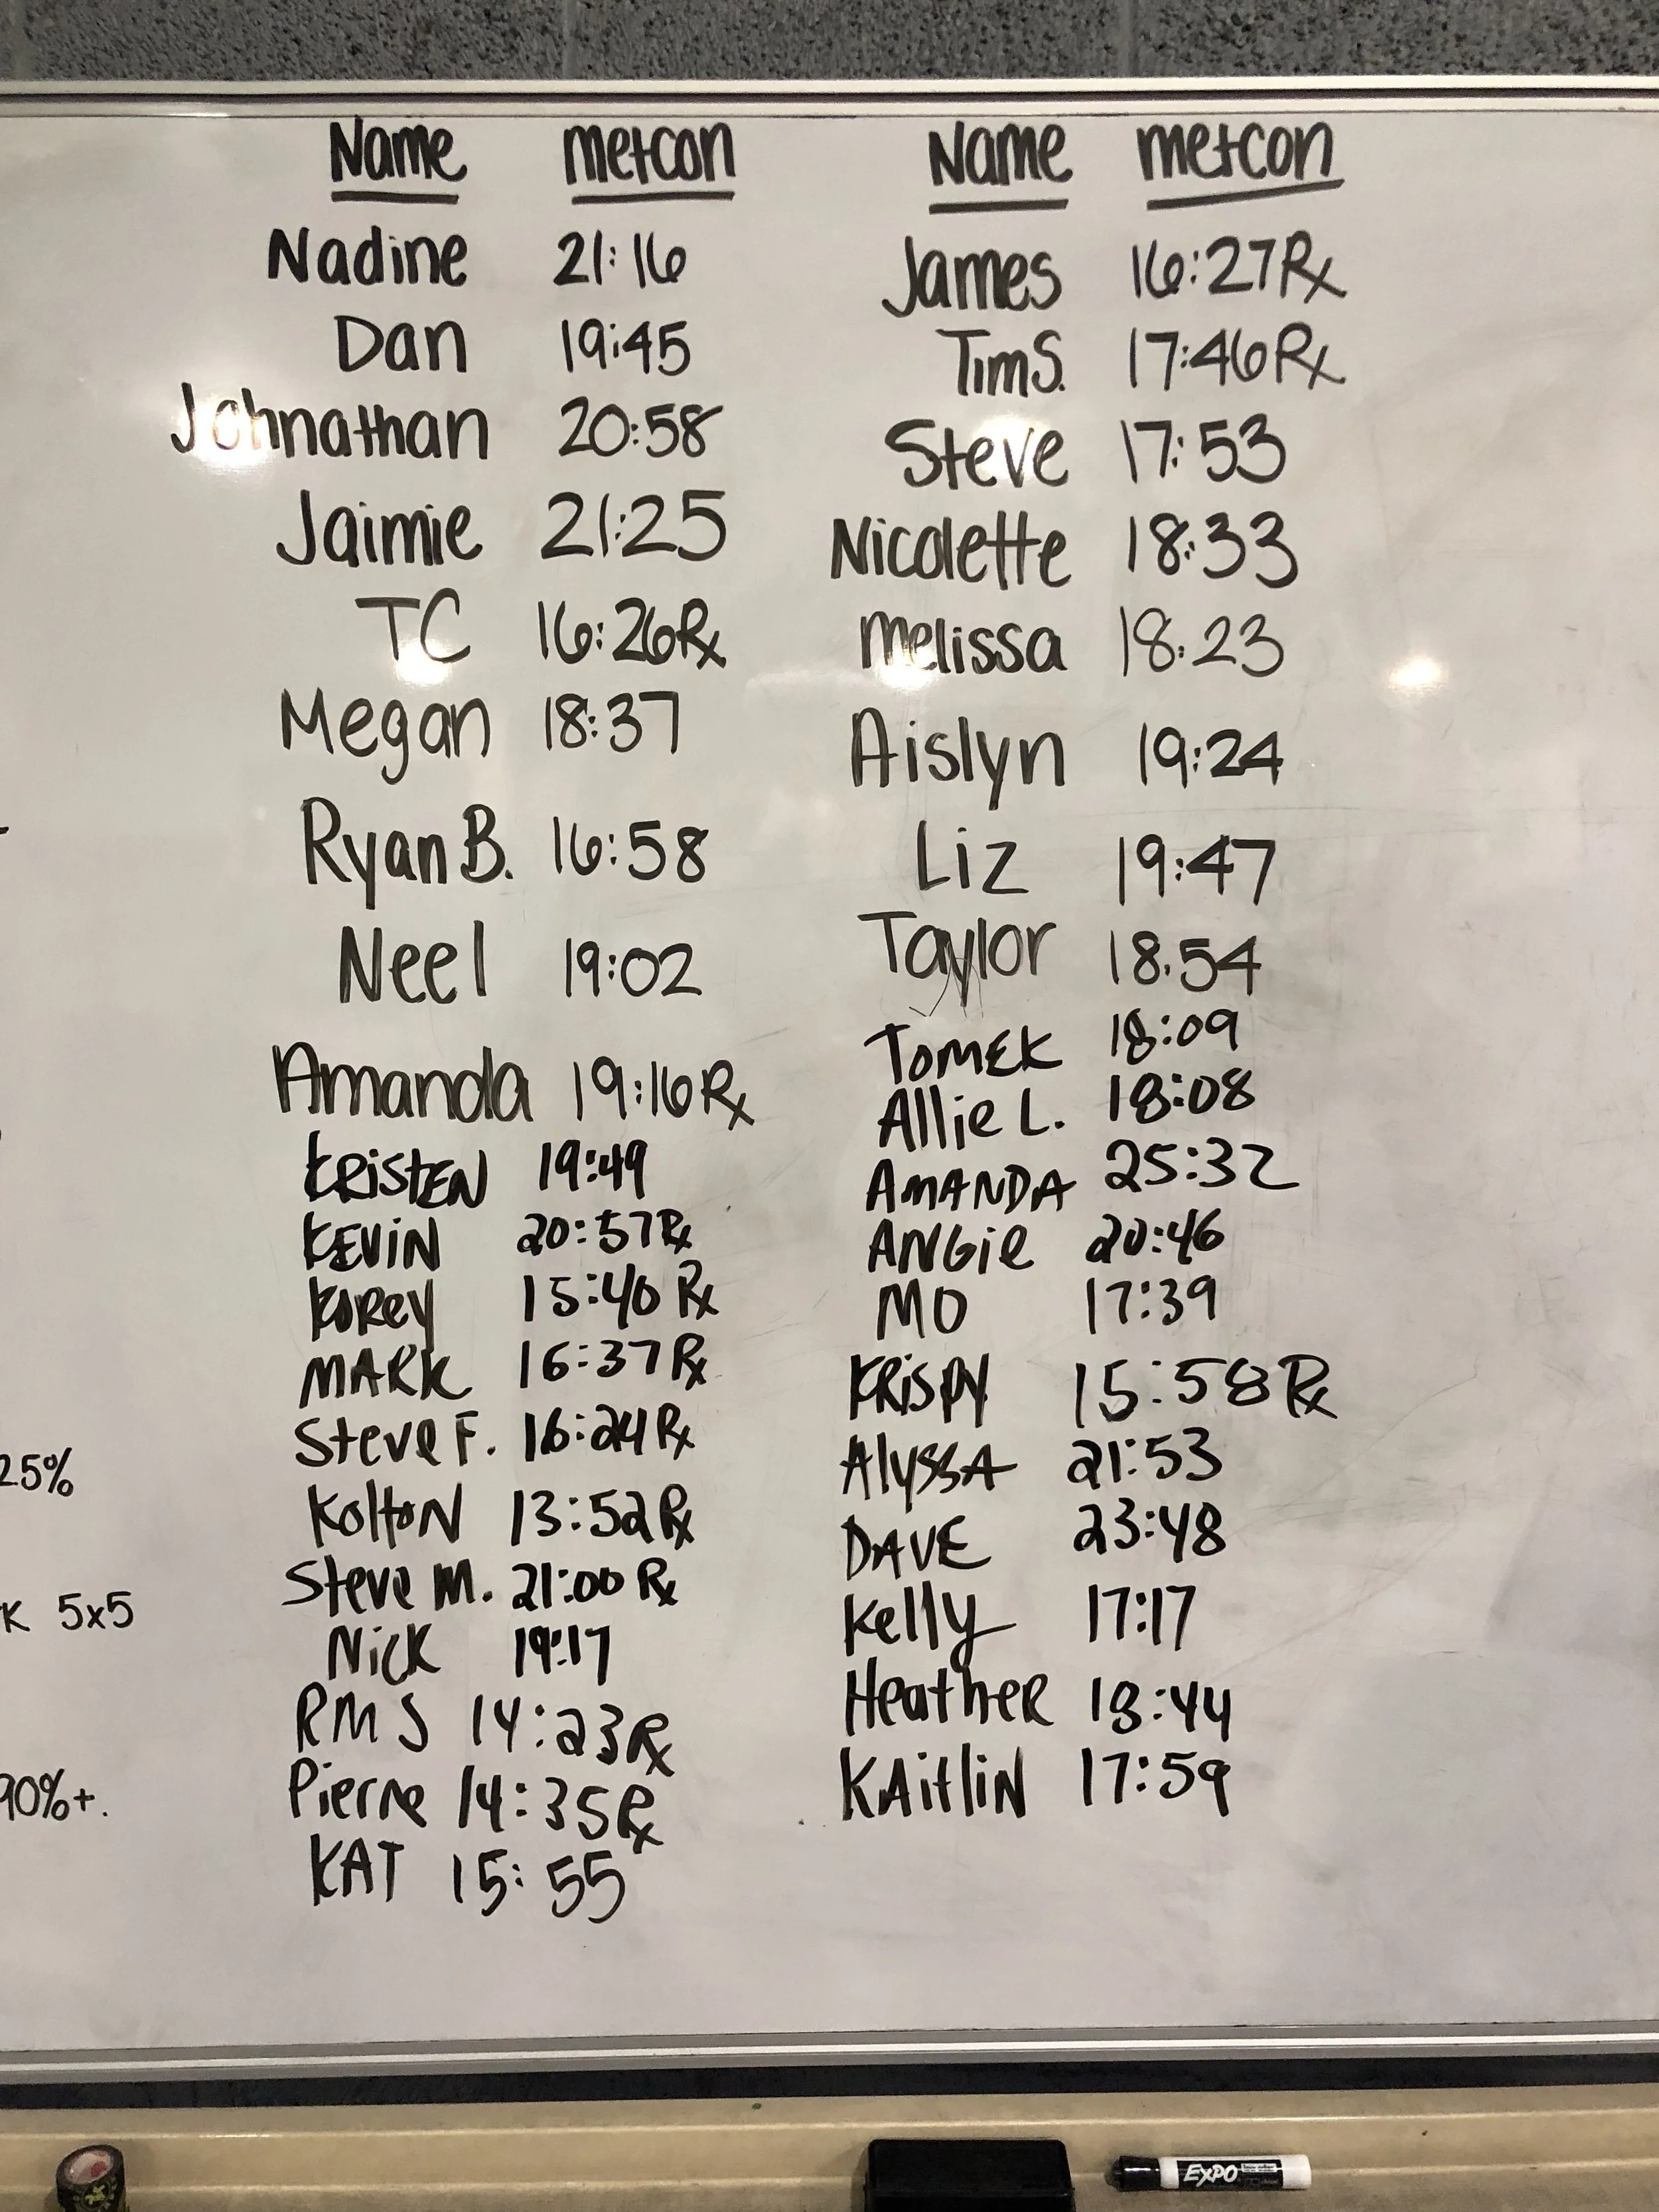 Name metcon
Nadine 21:16
Dan 19:45
Johnathan 20:58
Jaimie 21:25
TC 16:26 Rx
Megan 18:37
Ryan B. 16:58
Neel 19:02
Amanda 19:16 Rx
KRiSTEN 19:49
KEViN 20:57 Rx
KOREY 15:40 Rx
MARK 16:37 Rx
Steve F. 16:24 Rx
KoltoN 13:52 Rx
Steve M. 21:00 Rx
Nick 19:17
RMS 14:23 Rx
Pierre 14:35 Rx
KAT 15:55
Name metcon
James 16:27 Rx
Tim S. 17:46 Rx
Steve 17:53
Nicolette 18:33
Melissa 18:23
Aislyn 19:24
Liz 19:47
Taylor 18:54
TOMEK 18:09
Allie L. 18:08
AMANDA 25:32
ANGie 20:46
MO 17:39
KRiSPY 15:58 Rx
AlySSA 21:53
DAVE 23:48
Kelly 17:17
HeatheR 18:44
KAitliN 17:59
25%
K 5x5
90%+.
EXPO